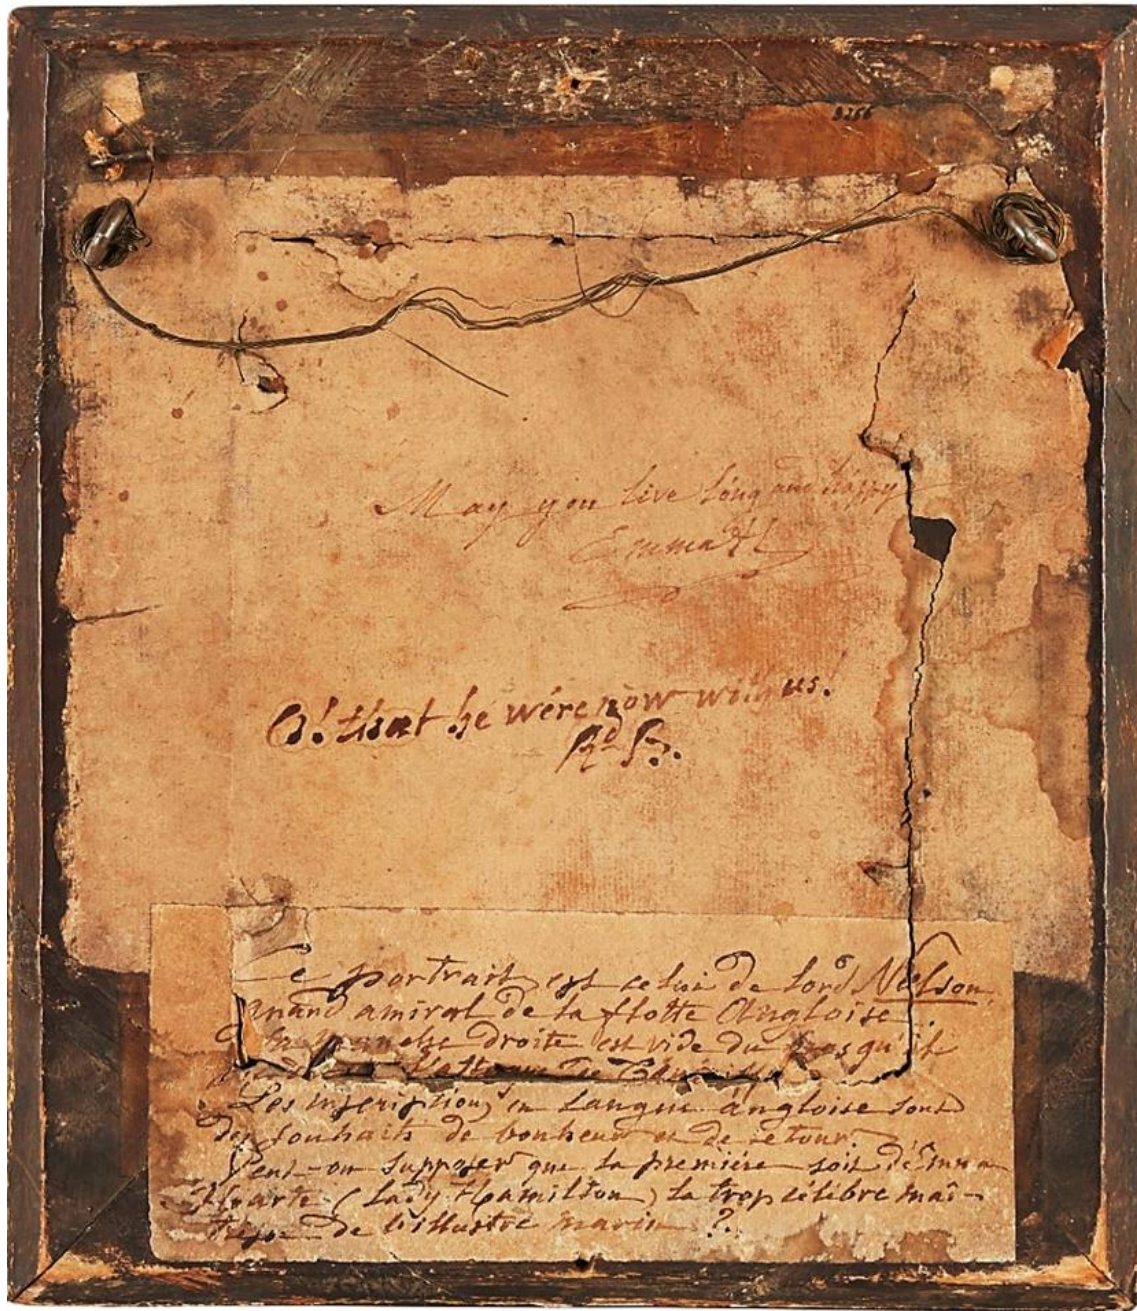 3266
May you live long and happy
Emma H
O! that he were now with us!
Rd B.
Ce portrait est celui de Lord Nelson,
grand amiral de la flotte Angloise.
manche droite est vide du bras qu'il
l'attaque de
Les inscriptions en langue angloise sont
des souhaits de bonheur et de retour.
Peut-on supposer que la première soit d'Emma
Hearte (Lady Hamilton) la trop célèbre maî-
tresse de l'illustre marin ?